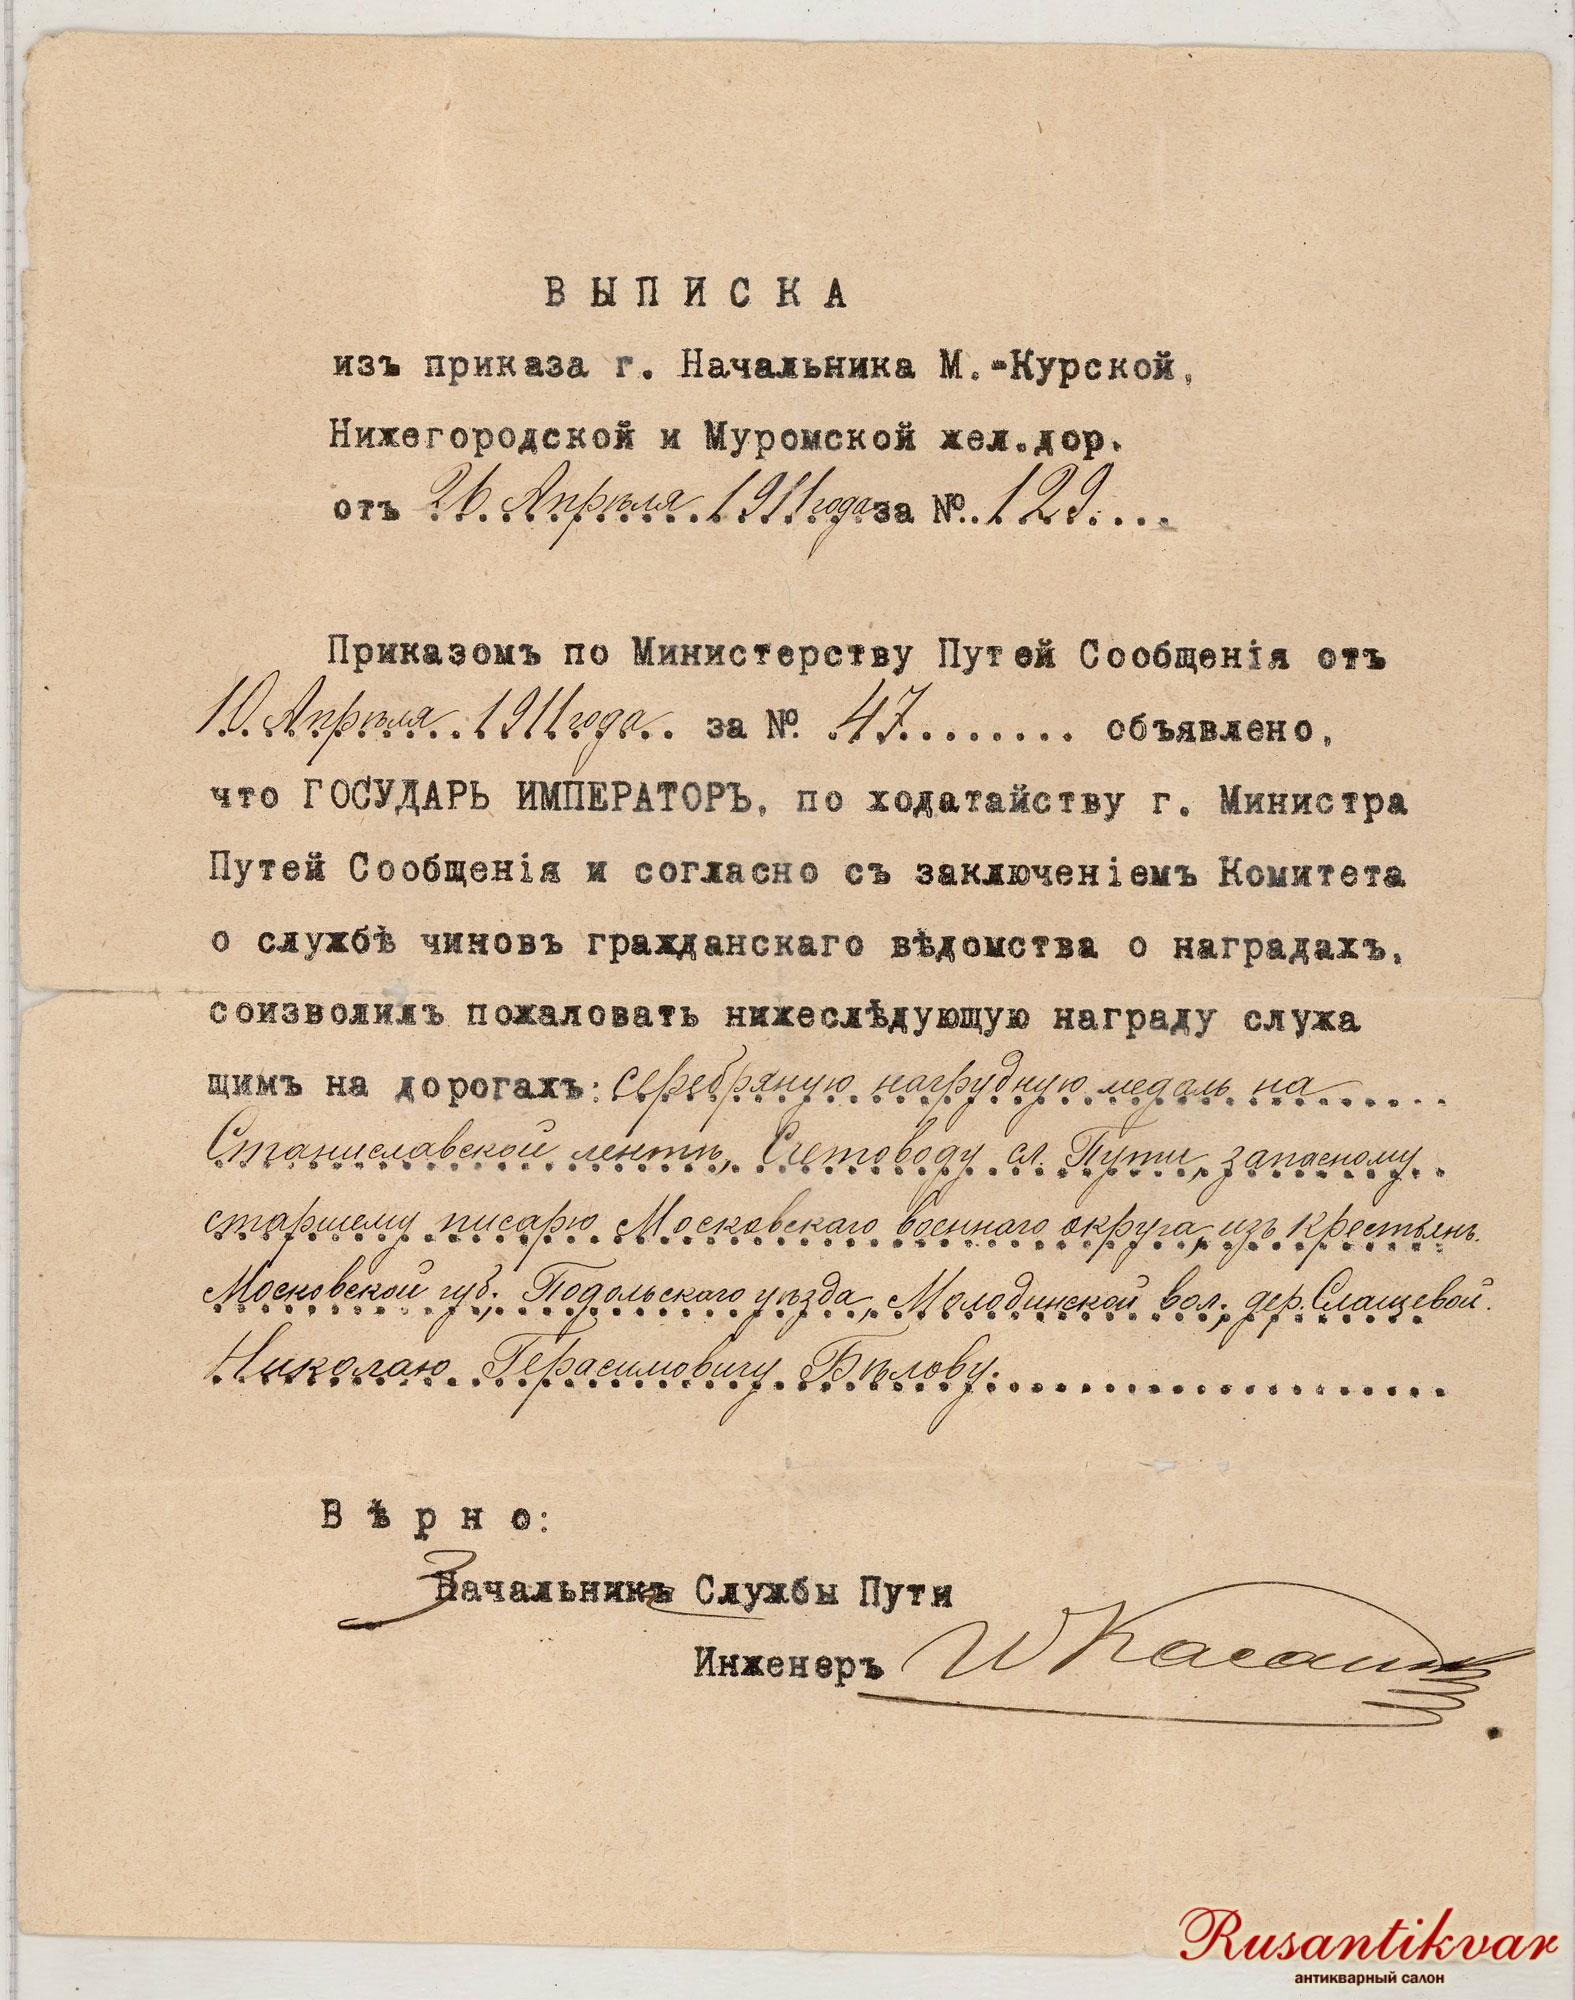 ВЫПИСКА
изъ приказа г. Начальника М.-Курской,
Нижегородской и Муромской жел.дор.
отъ 26 Апрѣля 1911 года за № 129
Приказомъ по Министерству Путей Сообщенія отъ
10 Апрѣля 1911 года за № 47 объявлено,
что ГОСУДАРЬ ИМПЕРАТОРЪ, по ходатайству г. Министра
Путей Сообщенія и согласно съ заключеніемъ Комитета
о службѣ чиновъ гражданскаго вѣдомства о наградахъ,
соизволилъ пожаловать нижеслѣдующую награду служа
щимъ на дорогахъ: серебряную нагрудную медаль на
Станиславской лентѣ, Счетоводу сл. Пути, запасному
старшему писарю Московскаго военнаго округа, изъ крестьянъ
Московской губ., Подольскаго уѣзда, Молодинской вол., дер. Слащевой
Николаю Герасимовичу Бѣлову.
Вѣрно:
Начальникъ Службы Пути
Инженеръ
Rusantikvar
антикварный салон